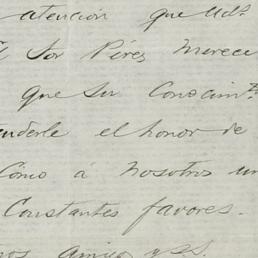 atención que Uds.
El Sor Pérez merece
que su conocimto.
enderle el honor de
Cómo á nosotros un
Constantes favores.
nos amigos y SS.